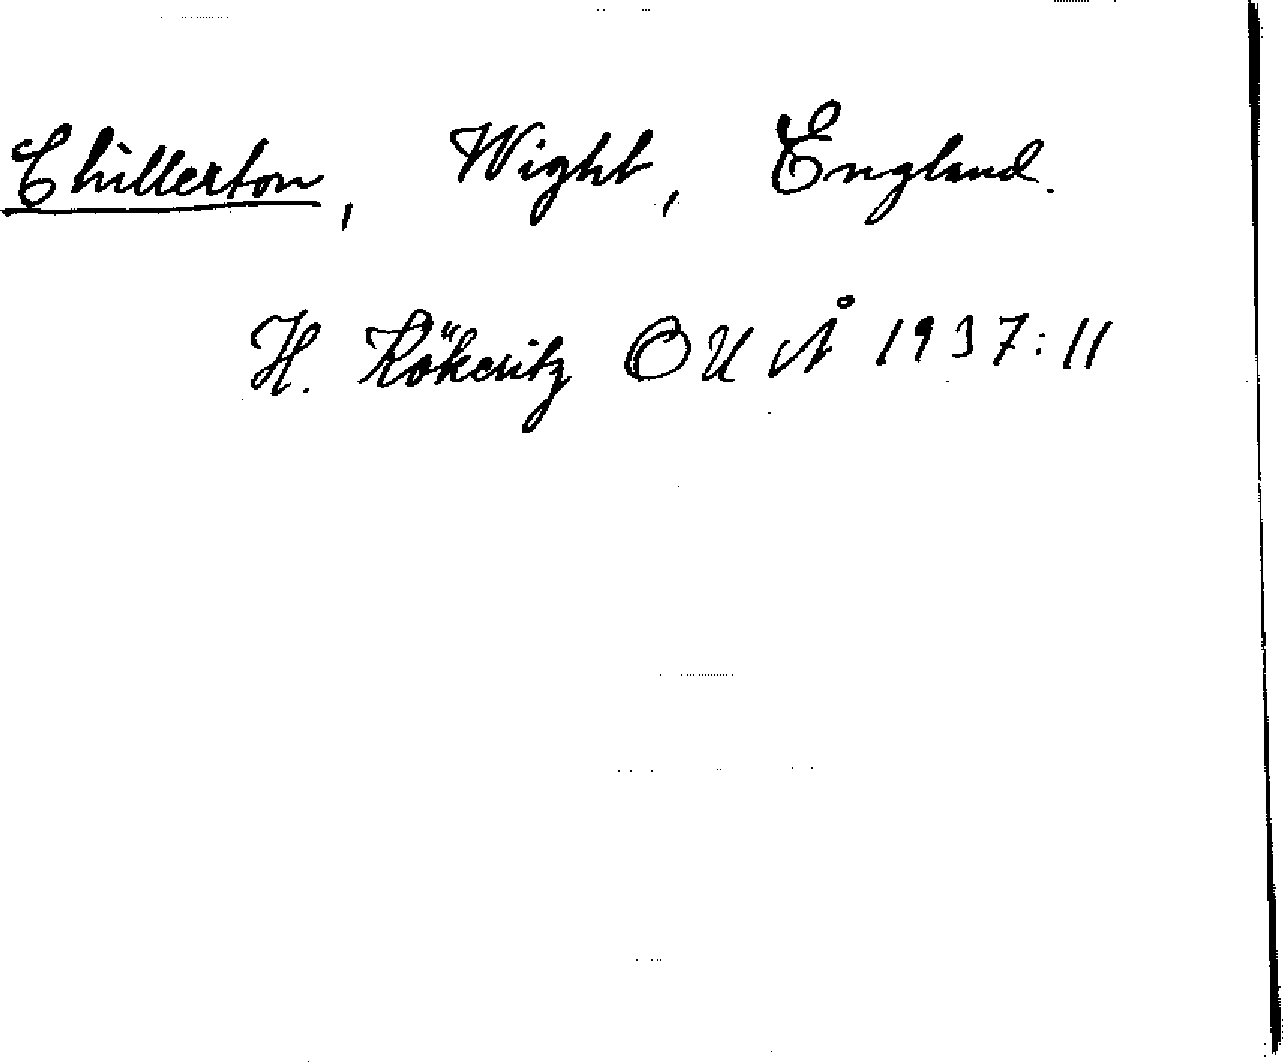 Chillerton, Wight, England.
H. Kökeritz OUÅ 1937:11